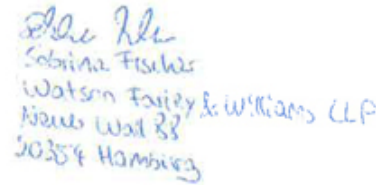 Sabrina Fischer
Watson Farley & Williams LLP
Neuer Wall 88
20354 Hamburg